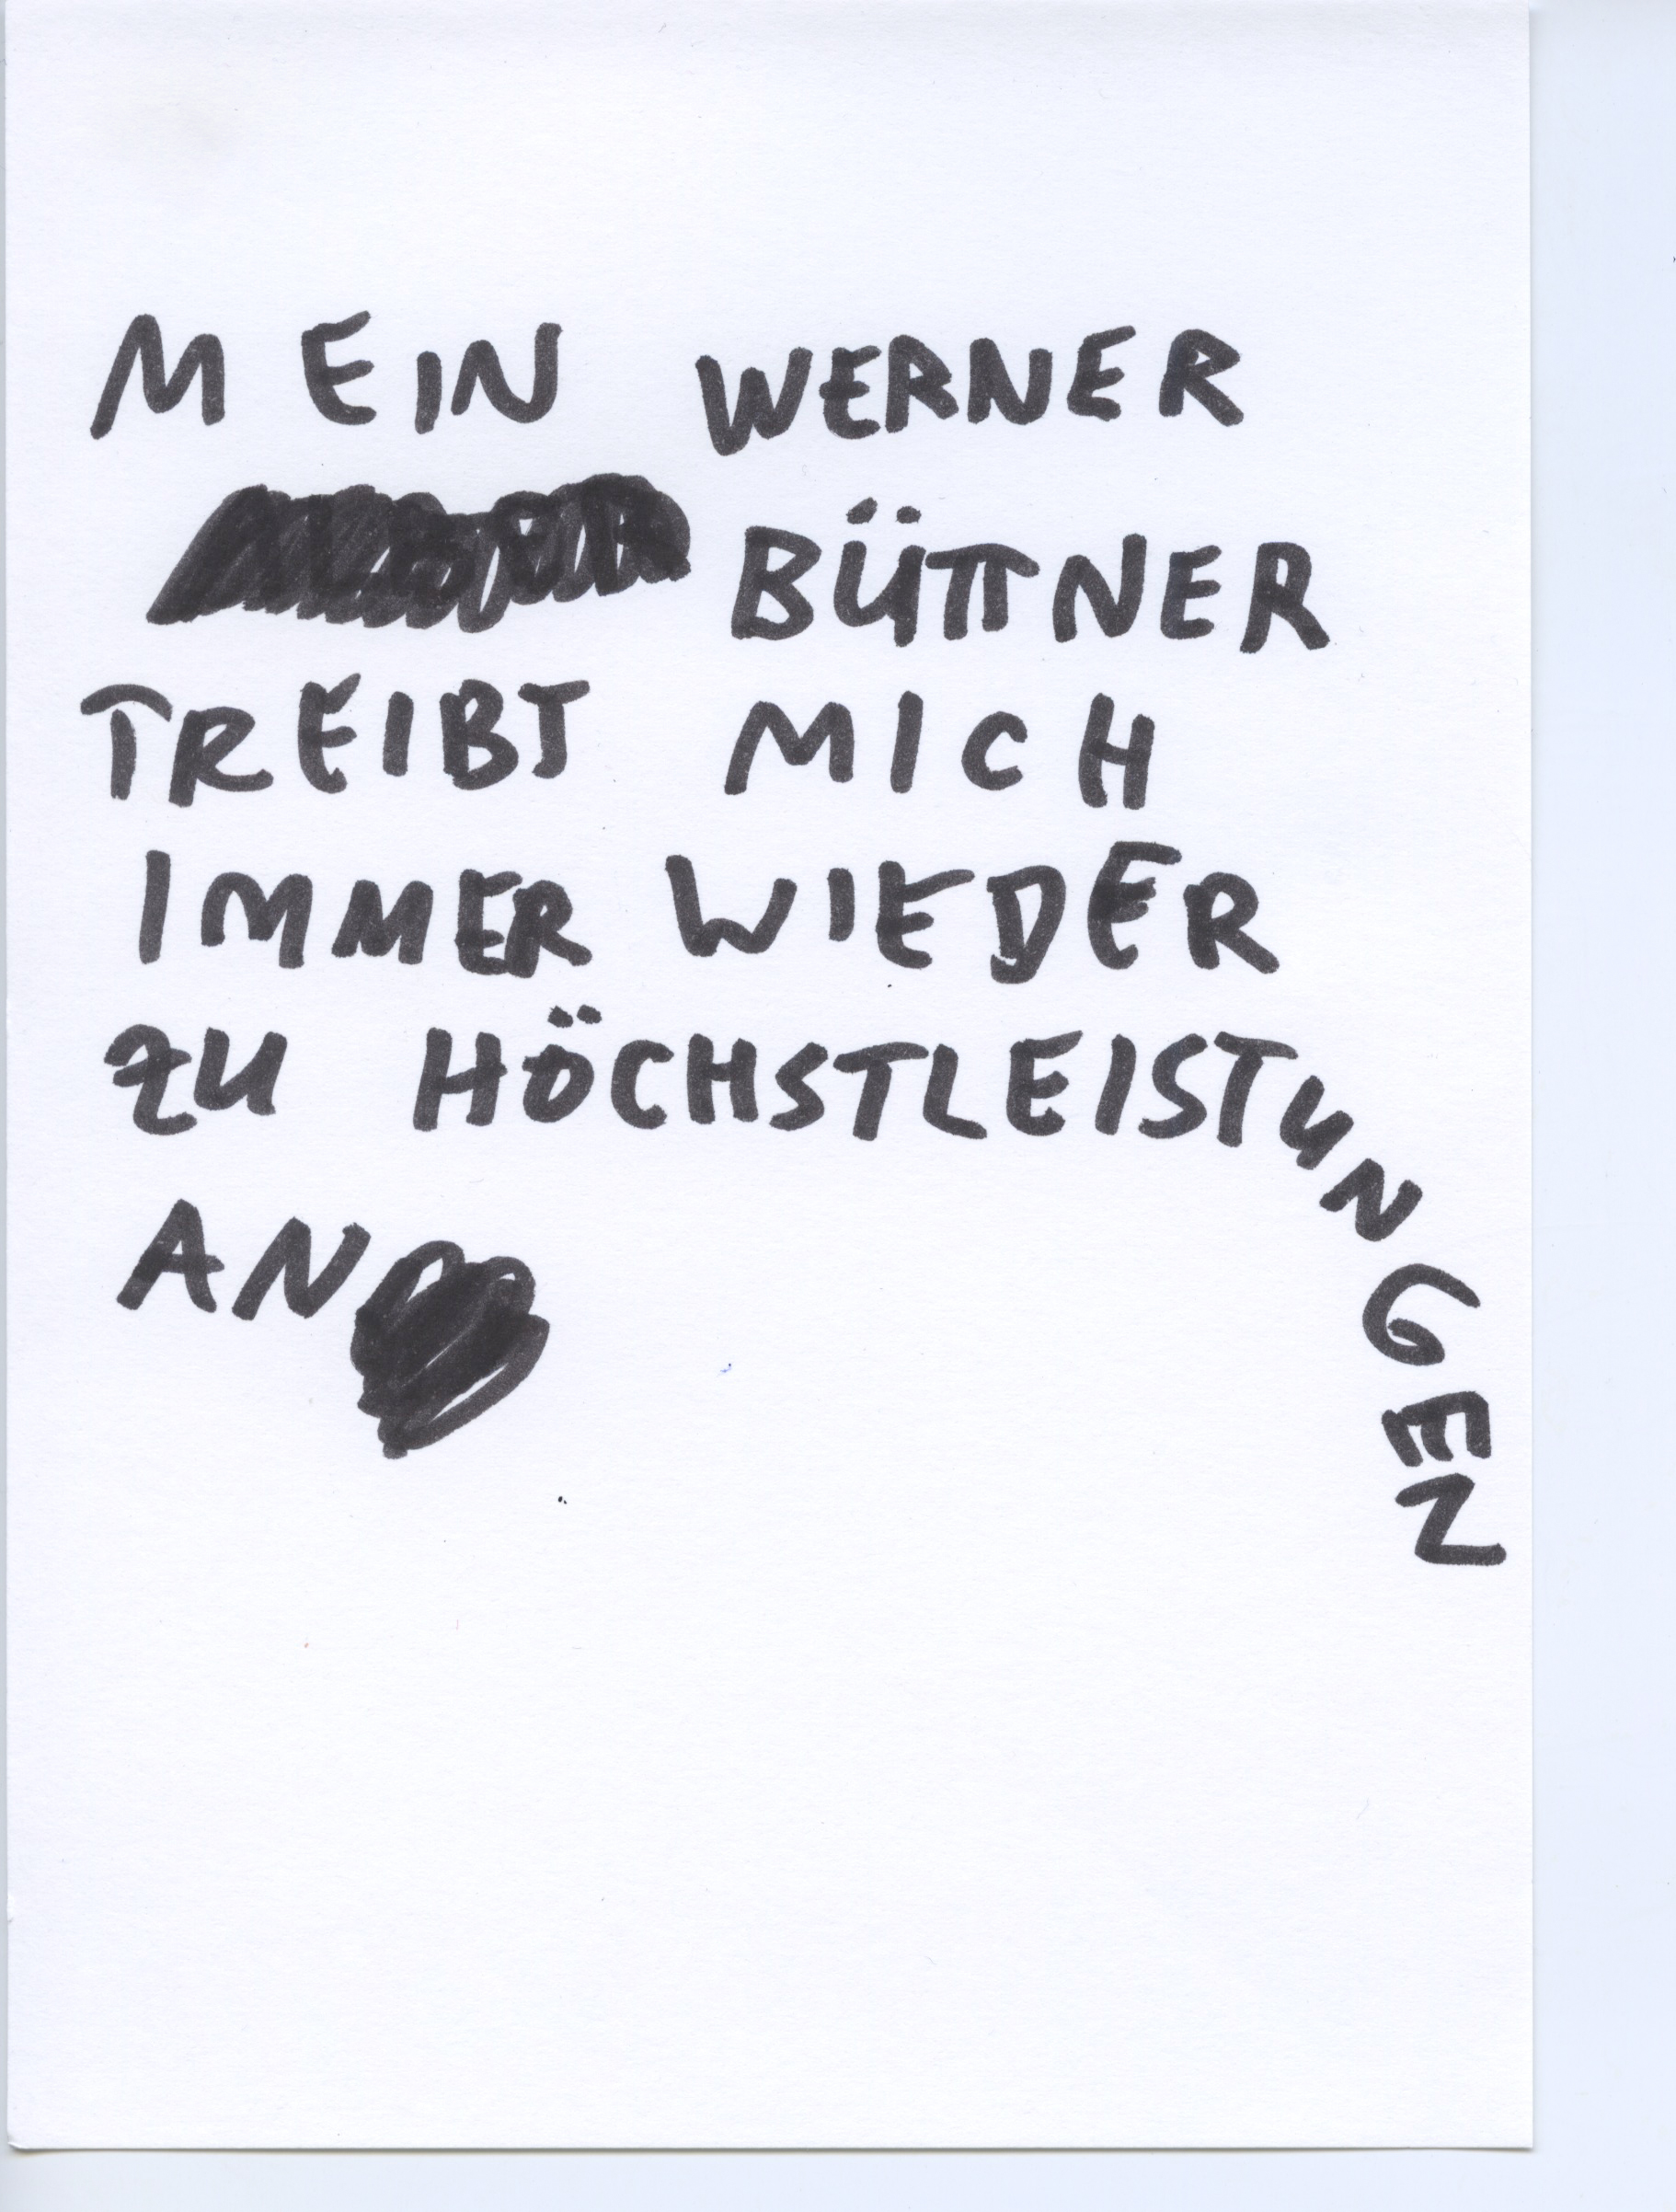 MEIN WERNER
BÜTTNER
TREIBT MICH
IMMER WIEDER
ZU HÖCHSTLEISTUNGEN
AN